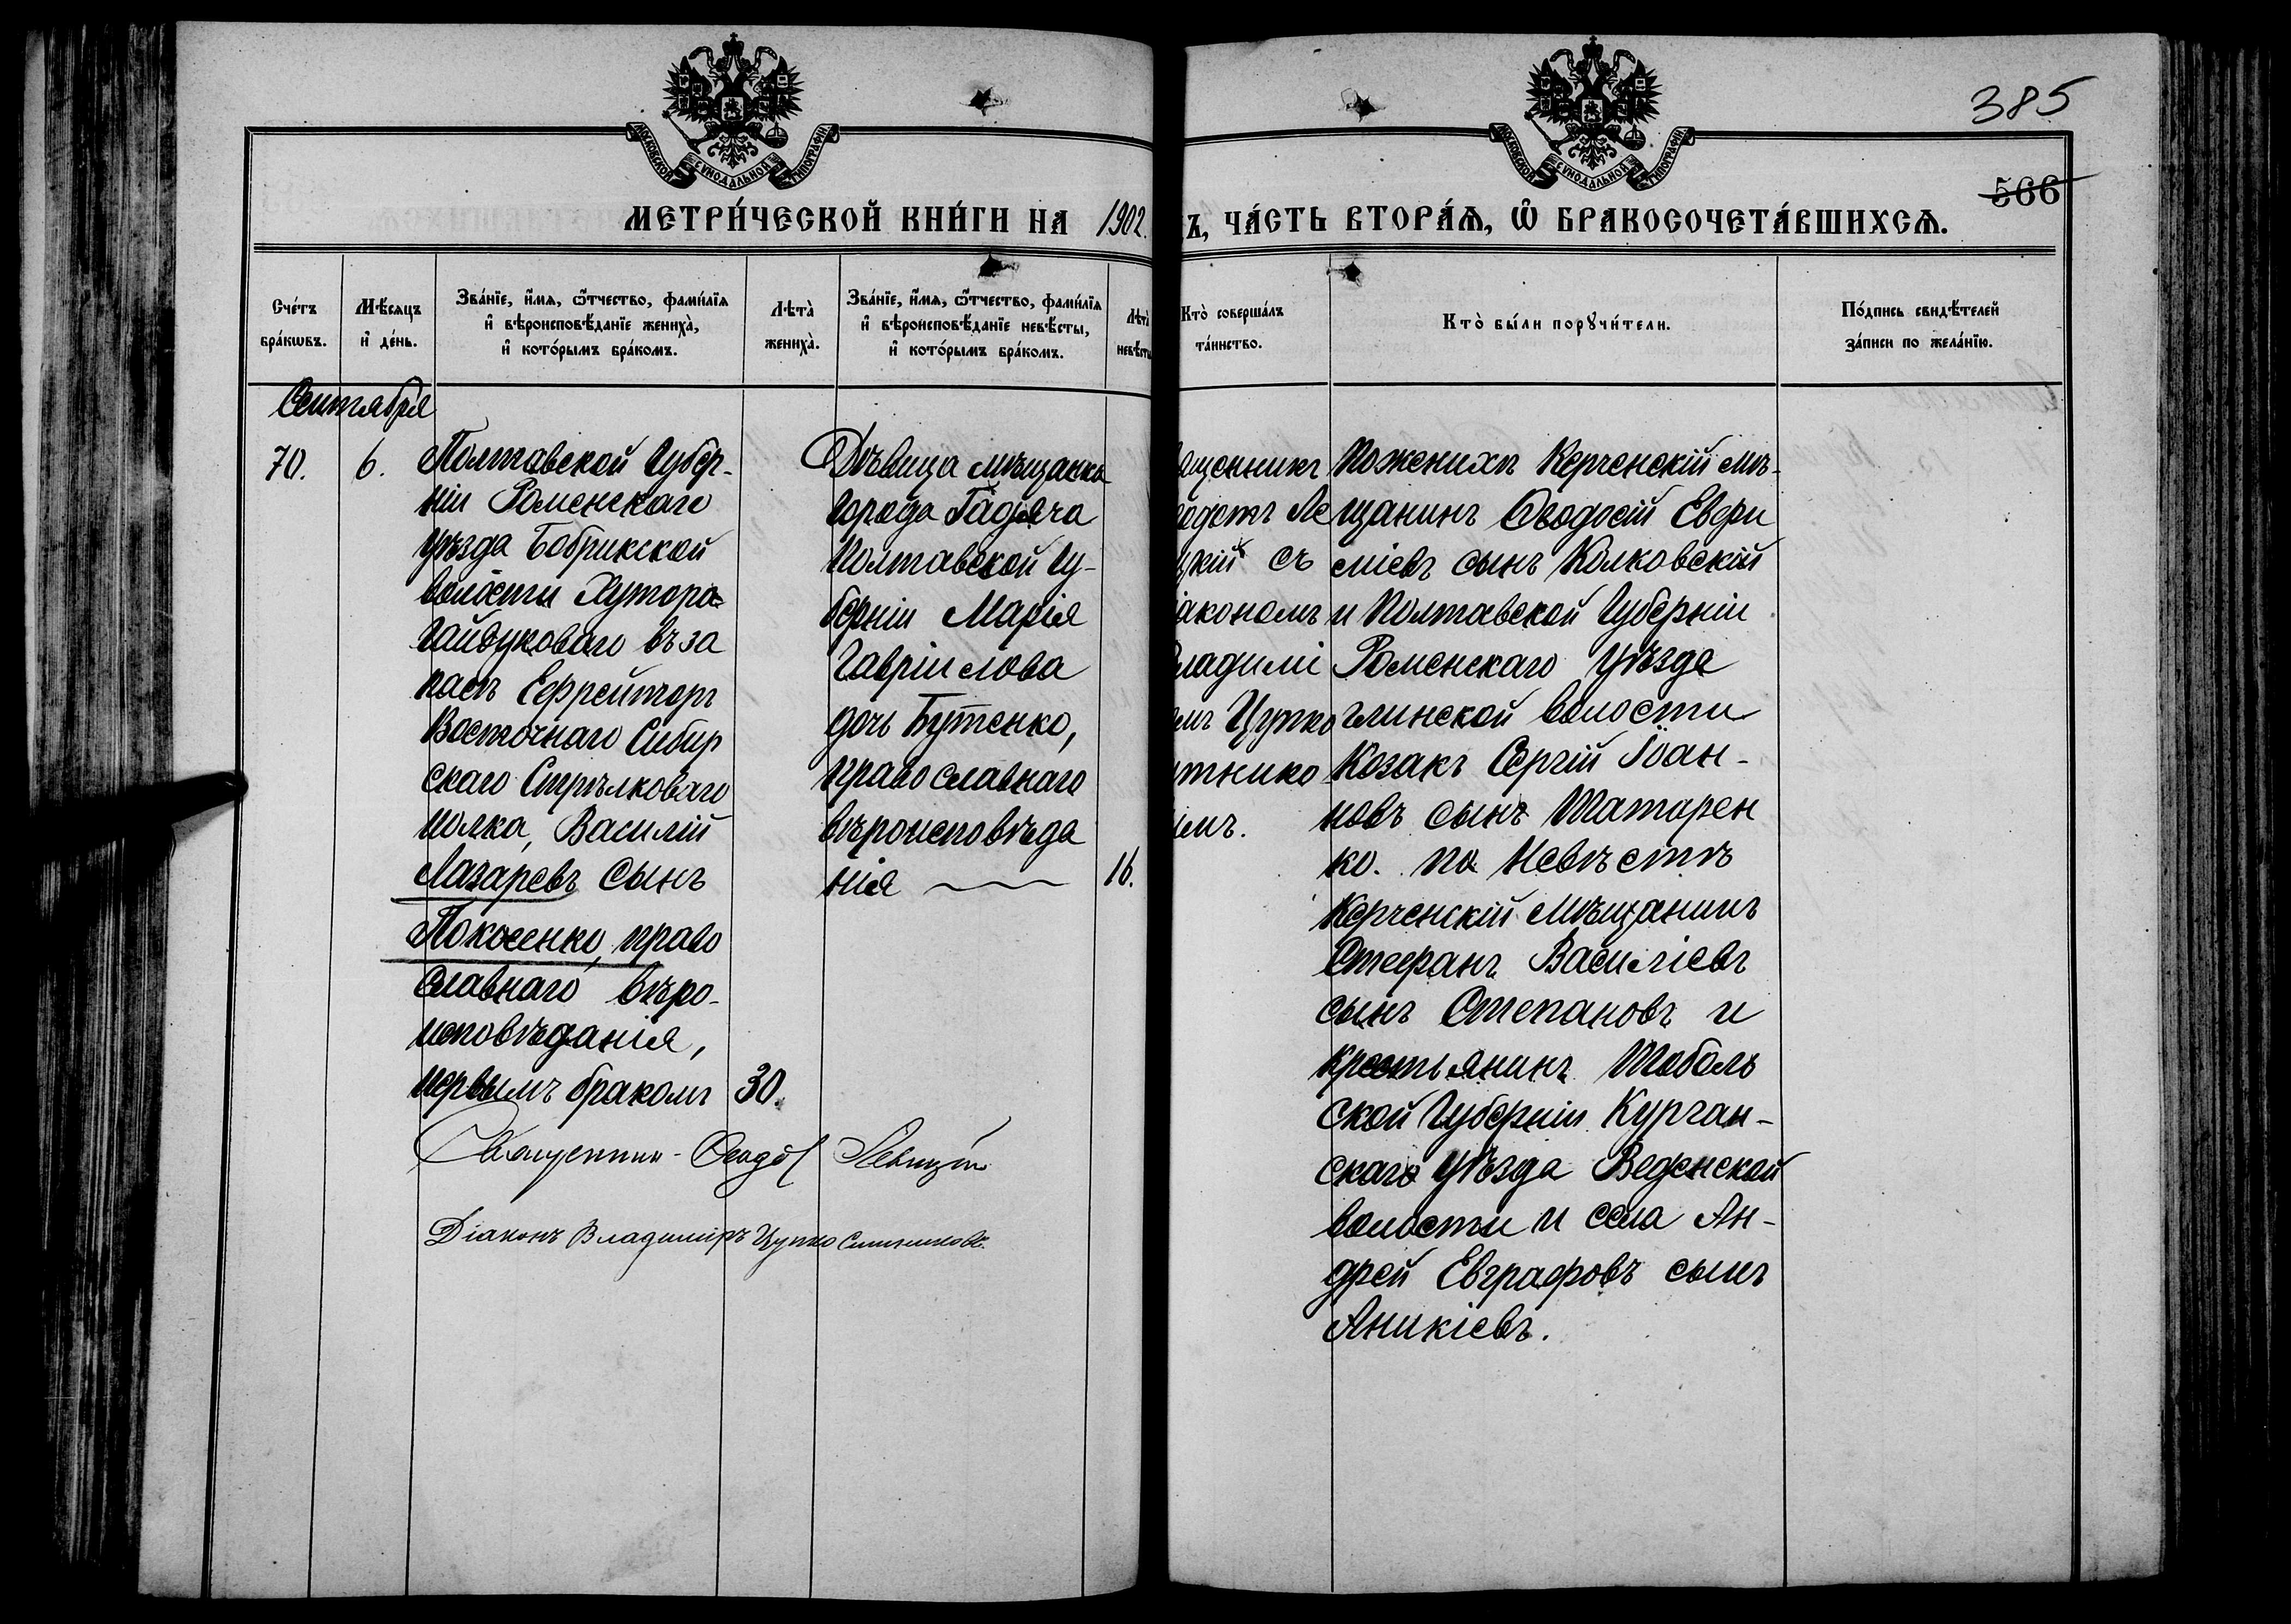 385
566
МОСКОВСКОЙ СѴНОДАЛЬНОЙ ТИПОГРАФІИ
МОСКОВСКОЙ СѴНОДАЛЬНОЙ ТИПОГРАФІИ
МЕТРИ́ЧЕСКОЙ КНИ́ГИ НА 1902.
Ъ, ЧА́СТЬ ВТОРА́Ѧ, Ѽ БРАКОСОЧЕТА́ВШИХСѦ.
Сче́тъ
бра́кѡвъ.
Мѣ́сяцъ
и҆ де́нь.
Зва́нїе, и҆́мѧ, ѻ҆́тчество, фами́лїѧ
и҆ вѣроисповѣ́данїе жениха̀,
и҆ кото́рымъ бра́комъ.
Лѣта̀
жениха̀.
Зва́нїе, и҆́мѧ, ѻ҆́тчество, фами́лїѧ
и҆ вѣроисповѣ́данїе невѣ́сты,
и҆ кото́рымъ бра́комъ.
Лѣта̀
невѣсты
Кто̀ соверша́лъ
та́инство.
Кто̀ бы́ли порꙋчи́тели.
По́дпись свидѣ́телей
за́писи по жела́нїю.
Сентября
70.
6.
Полтавской Губер-
ніи Роменскаго
уѣзда Бобрикской
волости Хутора
Гайдуковаго въ за
пасъ Ефрейторъ
Восточнаго Сибир
скаго Стрѣлковаго
полка, Василій
Лазаревъ сынъ
Покосенко, право
славнаго вѣро-
исповѣданія,
первымъ бракомъ
30.
Дѣвица мѣщанка
города Гадяча
Полтавской Гу-
берніи Марія
Гавріилова
дочь Бутенко,
православнаго
вѣроисповѣда
нія
16.
Священникъ Ѳеод Левицкій
Діаконъ Владиміръ Цупко Ситниковъ.
ященникъ
одотъ Ле
цкій съ
іакономъ
ладимі
омъ Цупко
итнико
ымъ.
По женихѣ Керченскій мѣ-
щанинъ Ѳеодосій Евфи
міевъ сынъ Колковскій
и Полтавской Губерніи
Роменскаго уѣзда
глинской волости
Козакъ Сергій Іоан-
новъ сынъ Татарен
ко. по Невѣстѣ
Керченскій Мѣщанинъ
Стефанъ Василіевъ
сынъ Степановъ и
крестьянинъ Тоболь
ской Губерніи Курган-
скаго уѣзда Веденской
волости и села Ан-
дрей Евграфовъ сынъ
Аникіевъ.